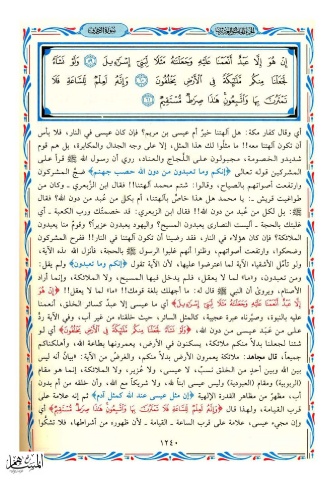 إِنْ هُوَ إِلَّا عَبْدٌ أَنْعَمْنَا عَلَيْهِ وَجَعَلْنَاهُ مَثَلًا لِبَنِي إِسْرَائِيلَ ۝٥٩ وَلَوْ نَشَاءُ
لَجَعَلْنَا مِنْكُمْ مَلَائِكَةً فِي الْأَرْضِ يَخْلُفُونَ ۝٦٠ وَإِنَّهُ لَعِلْمٌ لِلسَّاعَةِ فَلَا
تَمْتَرُنَّ بِهَا وَاتَّبِعُونِ هَذَا صِرَاطٌ مُسْتَقِيمٌ ۝٦١
أي وقال كفار مكة: هل آلهتنا خيرٌ أم عيسى بن مريم؟ فإن كان عيسى في النار، فلا بأس
أن تكون آلهتنا معه!! ما مثَّلوا لك هذا المثل، إلا على وجه الجدال والمكابرة، بل هم قوم
شديدو الخصومة، مجبولون على اللَّجاج والعناد، روي أن رسول الله ﷺ قرأ على
المشركين قوله تعالى ﴿إنكم وما تعبدون من دون الله حصب جهنم﴾ ضجَّ المشركون
وارتفعت أصواتهم بالصياح، وقالوا: شتم محمد آلهتنا!! فقال ابن الزِّبعرى ـ وكان من
طواغيت قريش ـ: يا محمد هل هذا خاصٌّ بآلهتنا، أم بكل من عُبد من دون الله؟ فقال
ﷺ: بل لكل من عُبد من دون الله!! فقال ابن الزبعرى: قد خصمتُك ورب الكعبة ـ أي
غلبتك بالحجة ـ أليست النصارى يعبدون المسيح؟ واليهود يعبدون عزيراً؟ وقومٌ منا يعبدون
الملائكة؟ فإن كان هؤلاء في النار، فقد رضينا أن تكون آلهتنا في النار!! ففرح المشركون
وضحكوا، وارتفعت أصواتهم، وظنوا أنهم غلبوا الرسول ﷺ بالحجة، فأنزل الله هذه الآية،
ولو تأمَّل الأشقياء الآية لما اعترضوا عليها، لأن الآية تقول ﴿إنكم وما تعبدون﴾ ولم يقل:
ومن تعبدون، و«ما» لما لا يعقل، فلم يدخل فيها المسيح، ولا الملائكة، وإنما أراد
الأصنام، ويروى أن النبي ﷺ قال له: ما أجهلك بلغة قومك!! «ما» لما لا يعقل!! ﴿إِنْ هُوَ
إِلَّا عَبْدٌ أَنْعَمْنَا عَلَيْهِ وَجَعَلْنَاهُ مَثَلًا لِبَنِي إِسْرَائِيلَ﴾ أي ما عيسى إلا عبدٌ كسائر الخلق، أنعمنا
عليه بالنبوة، وصيَّرناه عبرة عجيبة، كالمثل السائر، حيث خلقناه من غير أب، وفي الآية ردٌّ
على من عَبَد عيسى من دون الله، ﴿وَلَوْ نَشَاءُ لَجَعَلْنَا مِنْكُمْ مَلَائِكَةً فِي الْأَرْضِ يَخْلُفُونَ﴾ أي لو
شئنا لجعلنا بدلاً منكم ملائكة، يسكنون في الأرض، يعمرونها بطاعة الله، وأهلكناكم
جميعاً، قال مجاهد: ملائكة يعمرون الأرض بدلاً منكم، والغرضُ من الآية: بيانُ أنه ليس
بين الله وبين أحدٍ من الخلق نسبٌ، لا عيسى، ولا عُزير، ولا الملائكة، إنما هو مقام
(الربوبية) ومقام (العبودية) وليس عيسى ابناً لله، ولا شريكاً مع الله، وأن خلقه من أم بدون
أب، مظهرٌ من مظاهر القدرة الإلهية ﴿إن مثل عيسى عند الله كمثل آدم﴾ ثم إنه علامة على
قرب القيامة، ولهذا قال ﴿وَإِنَّهُ لَعِلْمٌ لِلسَّاعَةِ فَلَا تَمْتَرُنَّ بِهَا وَاتَّبِعُونِ هَذَا صِرَاطٌ مُسْتَقِيمٌ﴾ أي
وإن مجيء عيسى، علامة على قرب الساعة ـ القيامة ـ لأن ظهوره من أشراطها، فلا تشكُّوا
١٢٤٠